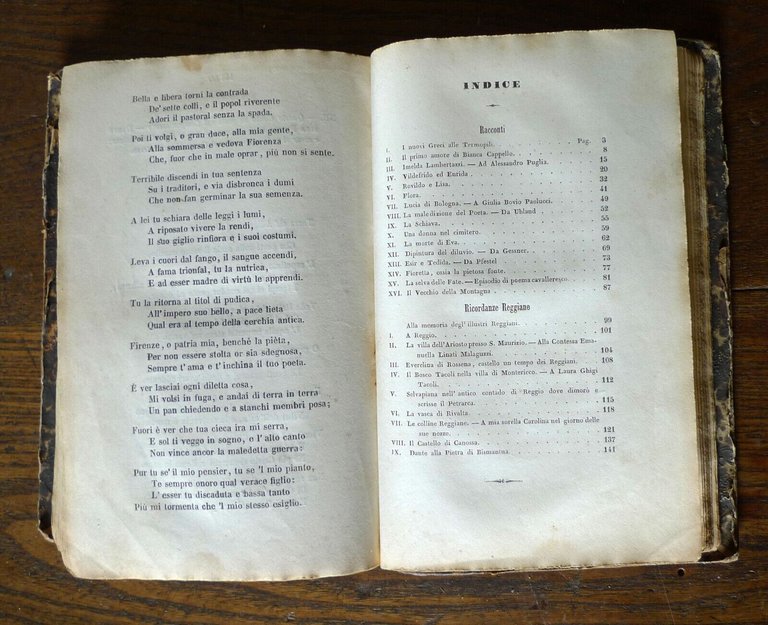 Bella e libera torni la contrada
De' sette colli, e il popol riverente
Adori il pastoral senza la spada.
Poi ti volgi, o gran duce, alla mia gente,
Alla sommersa e vedova Fiorenza
Che, fuor che in male oprar, più non si sente.
Terribile discendi in tua sentenza
Su i traditori, e via disbronca i dumi
Che non fan germinar la sua semenza.
A lei tu schiara delle leggi i lumi,
A riposato vivere la rendi,
Il suo giglio rinfiora e i suoi costumi.
Leva i cuori dal fango, il sangue accendi,
A fama trionfal, tu la nutrica,
E ad esser madre di virtù le apprendi.
Tu la ritorna al titol di pudica,
All' impero suo bello, a pace lieta
Qual era al tempo della cerchia antica.
Firenze, o patria mia, benchè la pièta,
Per non essere stolta or sia sdegnosa,
Sempre t' ama e t' inchina il tuo poeta.
È ver lasciai ogni diletta cosa,
Mi volsi in fuga, e andai di terra in terra
Un pan chiedendo e a stanchi membri posa;
Fuori è ver che tua cieca ira mi serra,
E sol ti veggo in sogno, e l' alto canto
Non vince ancor la maledetta guerra:
Pur tu se' il mio pensier, tu se 'l mio pianto,
Te sempre onoro qual verace figlio:
L' esser tu discaduta e bassa tanto
Più mi tormenta che 'l mio stesso esiglio.
INDICE
Racconti
I. I nuovi Greci alle Termopili . . . Pag. 3
II. Il primo amore di Bianca Cappello. . . . 8
III. Imelda Lambertazzi. — Ad Alessandro Puglia. . . . 15
IV. Vildefrido ed Eurida. . . . 20
V. Rovildo e Lisa. . . . 32
VI. Flora. . . . 41
VII. Lucia di Bologna. — A Giulia Bovio Paolucci. . . . 49
VIII. La maledizione del Poeta. — Da Uhland . . . 52
IX. La Schiava. . . . 55
X. Una donna nel cimitero. . . . 59
XI. La morte di Eva. . . . 62
XII. Dipintura del diluvio. — Da Gessner. . . . 69
XIII. Esir e Tedida. — Da Pfestel . . . 73
XIV. Fioretta, ossia la pietosa fante. . . . 77
XV. La selva delle Fate. — Episodio di poema cavalleresco. . . . 81
XVI. Il Vecchio della Montagna . . . 87
Ricordanze Reggiane
Alla memoria degl' illustri Reggiani. . . . 99
I. A Reggio. . . . 101
II. La villa dell'Ariosto presso S. Maurizio. — Alla Contessa Ema-
nuella Linati Malaguzzi. . . . 104
III. Everelina di Rossena, castello un tempo dei Reggiani. . . . 108
IV. Il Bosco Tacoli nella villa di Montericco. — A Laura Ghigi
Tacoli. . . . 112
V. Selvapiana nell'antico contado di Reggio dove dimorò e
scrisse il Petrarca. . . . 115
VI. La vasca di Rivalta. . . . 118
VII. Le colline Reggiane. — A mia sorella Carolina nel giorno delle
sue nozze. . . . 121
VIII. Il Castello di Canossa. . . . 137
IX. Dante alla Pietra di Bismantua. . . . 141